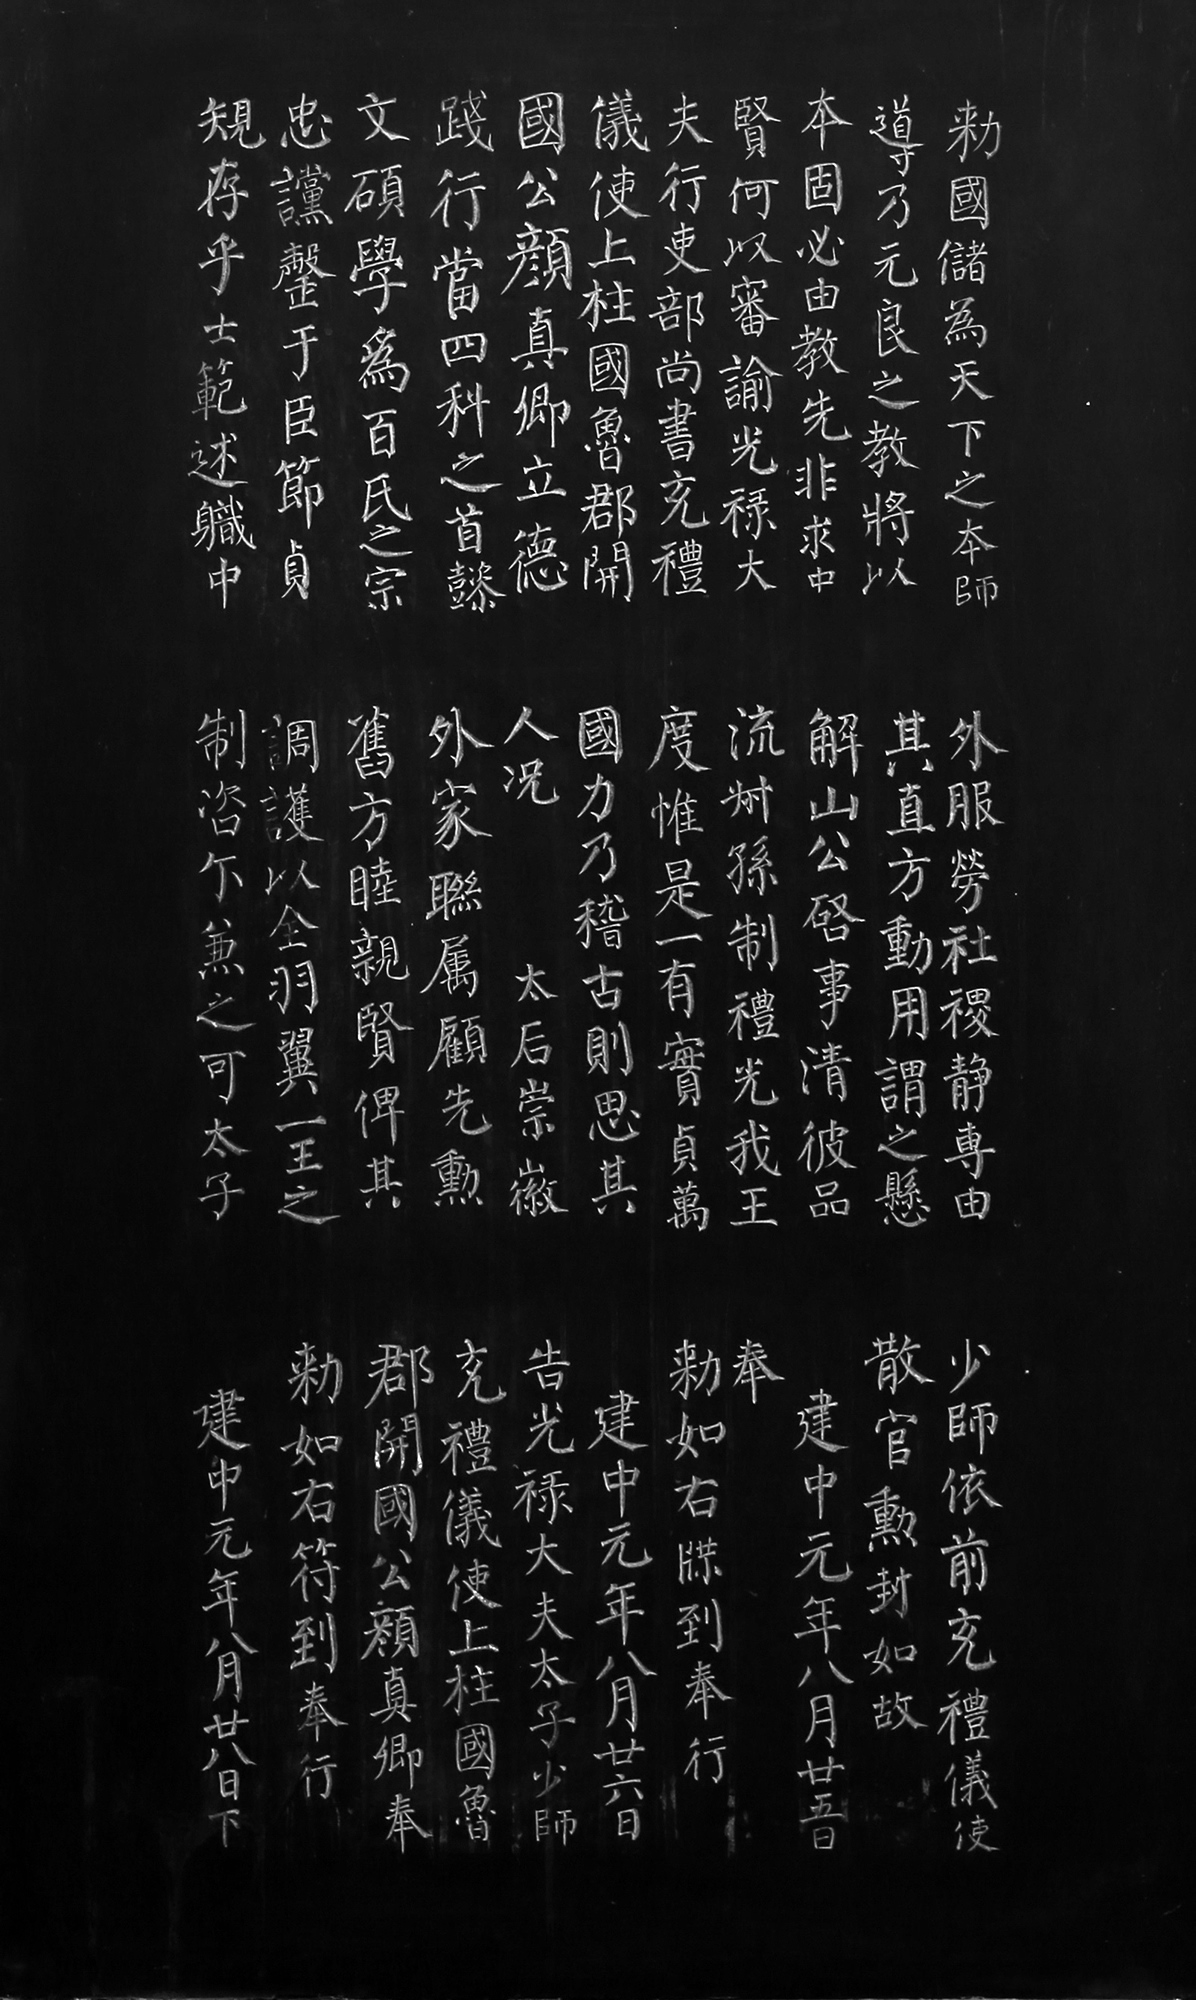 勑國儲為天下之本師
導乃元良之教將以
本固必由教先非求中
賢何以審諭光祿大
夫行吏部尚書充禮
儀使上柱國魯郡開
國公顏真卿立德
踐行當四科之首懿
文碩學為百氏之宗
忠讜罄于臣節貞
規存乎士範述職中
外服勞社稷静専由
其直方動用謂之懸
解山公啓事清彼品
流叔孫制禮光我王
度惟是一有實貞萬
國力乃稽古則思其
人况 太后崇徽
外家聯属顧先勳
舊方睦親賢俾其
調護以全羽翼一王之
制咨尔兼之可太子
少師依前充禮儀使
散官勳封如故
建中元年八月廿五日
奉
勑如右牒到奉行
建中元年八月廿六日
告光祿大夫太子少師
充禮儀使上柱國魯
郡開國公顏真卿奉
勑如右符到奉行
建中元年八月廿八日下